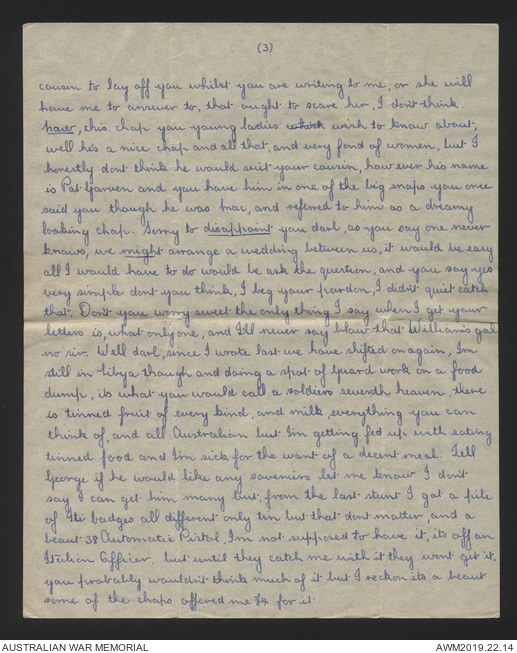 (3)
cousin to lay off you whilst you are writing to me, or she will
have me to answer to, that ought to scare her, I don't think.
now, this chap you young ladies which wish to know about,
well his a nice chap and all that, and very fond of women, but I
honestly dont think he would suit your cousin, how ever his name
is Pat Garven and you have him in one of the big snaps you once
said you though he was mac, and refered to him as a dreamy
looking chap. Sorry to disappoint you darl, as you say one never
knows, we might arrange a wedding between us, it would be easy
all I would have to do would be ask the question, and you say yes
very simple dont you think, I beg your pardon, I didn't quiet catch
that. Don't you worry sweet the only thing I say when I get your
letters is, what only one, and I'll never say blow that William's gal
no sir. Well darl, since I wrote last we have shifted on again, Im
still in Libya though and doing a spot of guard work on a food
dump, its what you would call a soldiers seventh heaven, there
is tinned fruit of every kind, and milk, everything you can
think of, and all Australian but I'm getting fed up with eating
tinned food and I'm sick for the want of a decent meal. Tell
George if he would like any souveniers let me know I don't
say I can get him many but, from the last stunt I got a pile
of Ite badges all different only tin but that dont matter, and a
beaut 38 Automatic Pistol, I'm not supposed to have it, its off an
Italian Officer, but until they catch me with it they wont get it.
you probably wouldn't think much of it but I reckon its a beaut
some of the chaps offered me £4 for it.
AUSTRALIAN WAR MEMORIAL
AWM2019.22.14